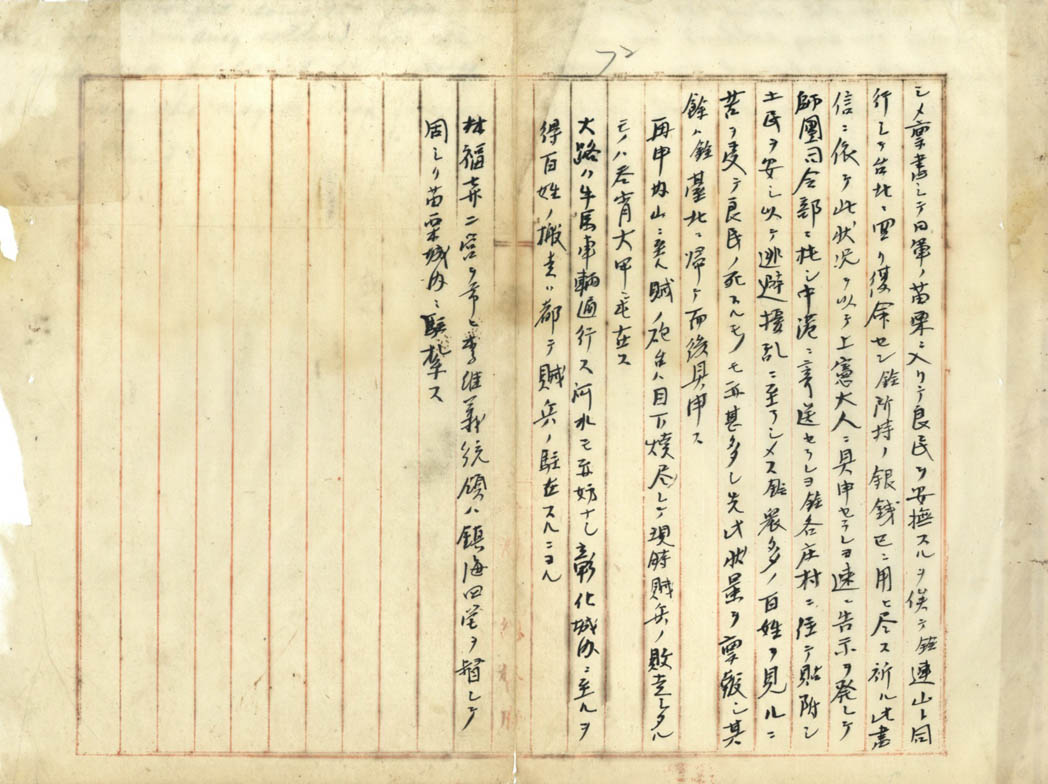 シメ稟書シテ日軍ノ苗栗ニ入リテ良民ヲ安撫スルヲ俟テ銓連山ト同
行シテ台北ニ回リ復命セン銓所持ノ銀銭已ニ用ヒ尽ス祈ル此書
信ニ依テ此状況ヲ以テ上憲大人ニ具申セラレヨ速ニ告示ヲ発シテ
師團司令部ニ托シ中港ニ寄送セラレヨ銓各庄村ニ往テ貼附シ
土民ヲ安シ以テ逃避擾乱ニ至ラシメス銓衆多ノ百姓ヲ見ルニ
苦ヲ受テ良民ノ死スルモノモ亦甚多シ先此状景ヲ稟報シ其
餘ハ銓臺北ニ帰テ面後具申ス
再申内山ニ在ル賊ノ砲台ハ目下焼尽シテ現時賊兵ノ敗走シタル
モノハ大甲ニ在ス
大路ハ牛馬車輌通行ス河水モ亦妨ナシ彰化城内ニ至ルヲ
得百姓ノ搬走ハ都テ賊兵ノ駐在スルニヨル
林福喜二営ヲ帯ヒ李惟義統領ハ鎮海四営ヲ督シテ
同シク苗栗城内ニ駐紮ス